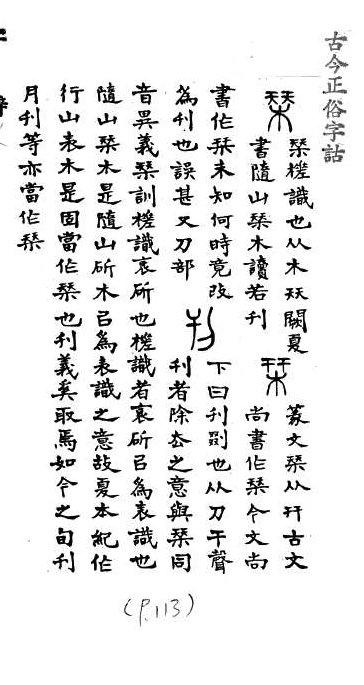 古今正俗字詁
栞槎識也从木闕夏
書隨山栞木讀若刊
栞
篆文栞从幵古文
尚書作栞今文尚
書作栞未知何時竟改
為刊也誤甚又刀部
刊
下曰刊剟也从刀干聲
刊者除去之意與栞同
音異義栞訓槎識衺斫也槎識者衺斫㠯為表識也
隨山栞木是隨山斫木㠯為表識之意故夏本紀作
行山表木是固當作栞也刊義奚取焉如今之旬刊
月刊等亦當作栞
(P.113)